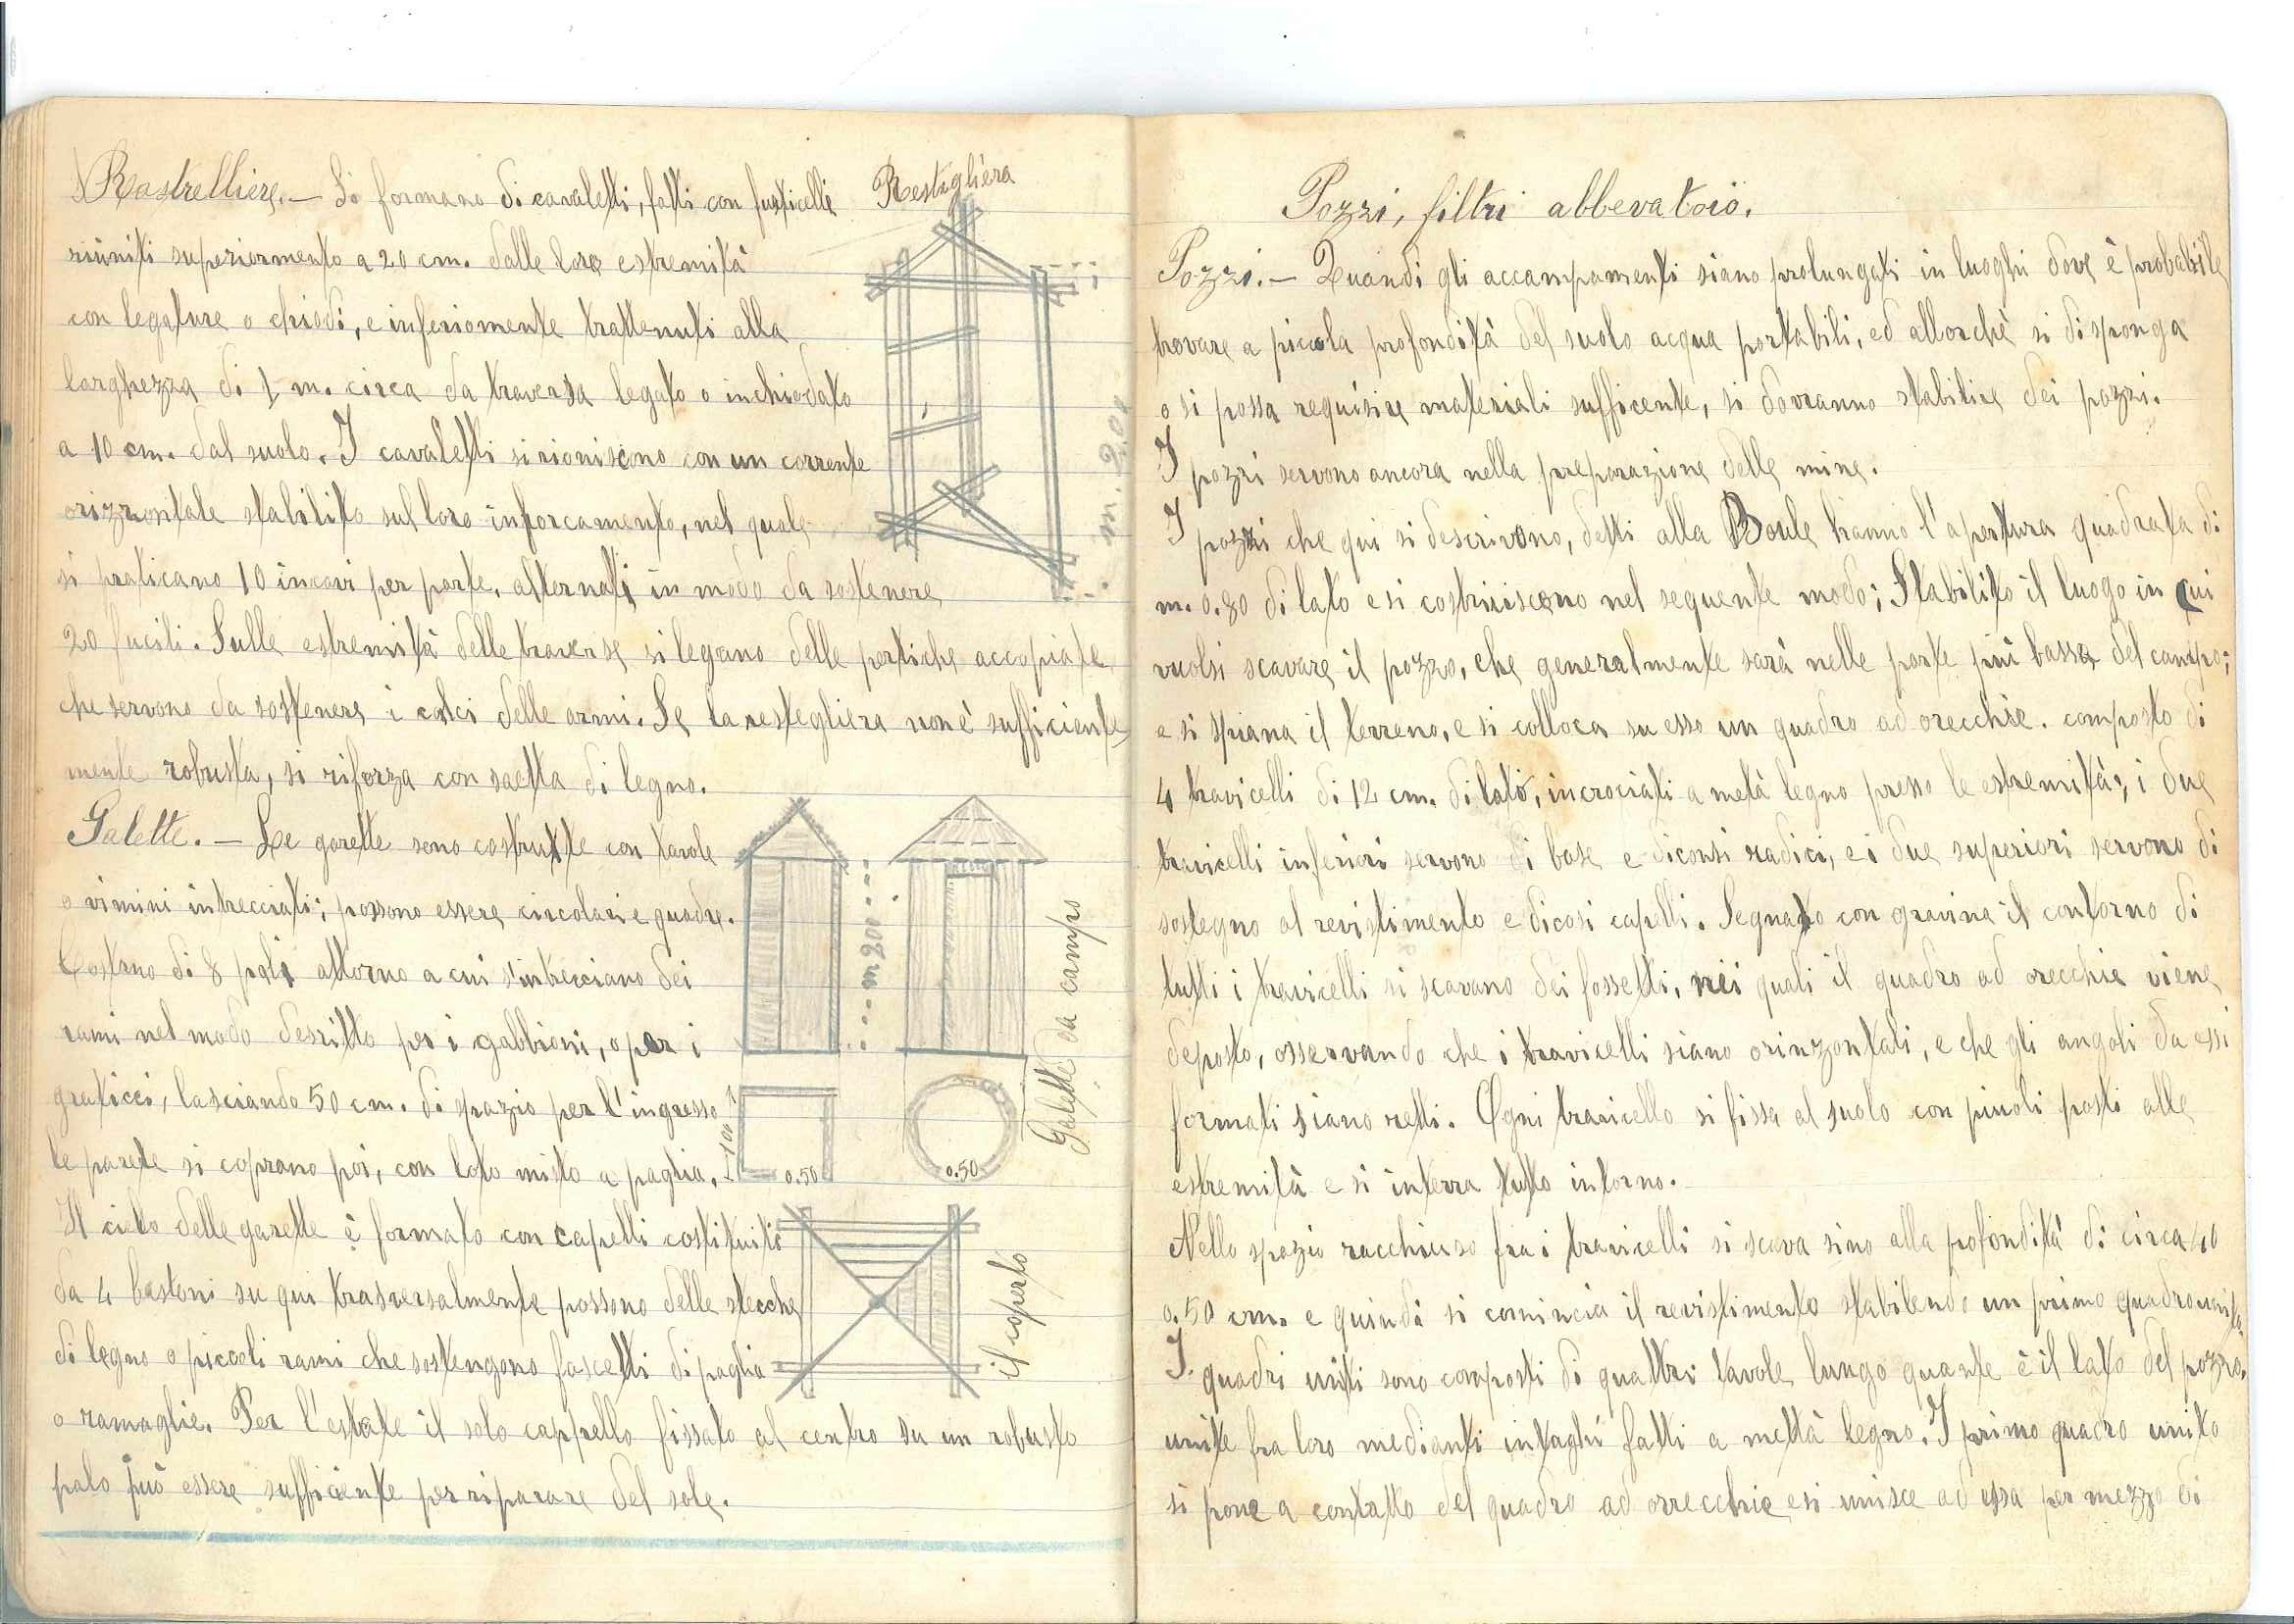 Rastrelliere. — Si formano di cavaletti, fatti con fusticelli
riuniti superiormente a 20 cm. dalle loro estremità
con legature o chiodi, e inferiomente trattenuti alla
larghezza di 1 m. circa da traversa legato o inchiodato
a 10 cm. dal suolo. I cavaletti si rioniscono con un corrente
orizzontale stabilito sul loro inforcamento, nel quale
si praticano 10 incavi per parte, alternati in modo da sostenere
20 fucili. Sulle estremità delle traverse si legano delle pertiche accopiate
che servono da sostenere i calci delle armi. Se la restegliera non è sufficiente
mente robusta, si riforza con saetta di legno.
Restigliera
m. 2.00
Galette. — Le garette sono costruitte con tavole
o vimini intrecciati; possono essere circolari e quadre.
Costano di 8 pali attorno a cui s'intrecciano dei
rami nel modo desritto per i gabbioni, o per i
graticci, lasciando 50 cm. di spazio per l'ingresso
le parete si coprono poi, con loto misto a paglia.
Il cielo delle garette è formato con capelli costituiti
da 4 bastoni su qui trasversalmente possono delle stecche
di legno o piccoli rami che sostengono fascetti di paglia
o ramaglie. Per l'estate il solo cappello fissato al centro su un robusto
palo può essere sufficiente per riparare del sole.
m 200
Galette da campo
1.00
0.50
0.50
il coperto
Pozzi, filtri abbevatoio.
Pozzi. — Quandi gli accampamenti siano prolungati in luoghi dove è probabile
trovare a piccola profondità del suolo acqua portabili, ed allorchè si disponga
o si possa requisire materiali sufficente, si dovranno stabilire dei pozzi.
I pozzi servono ancora nella preparazione delle mine.
I pozzi che qui si descrivono, detti alla Boule hanno l'apertura quadrata di
m. 0.80 di lato e si costruiscono nel seguente modo; Stabilito il luogo in cui
vuolsi scavare il pozzo, che generalmente sarà nelle parte più bassa del campo;
e si spiana il terreno, e si colloca su esso un quadro ad orecchie. composto di
4 travicelli di 12 cm. di lato, incrociati a metà legno presso le estremità; i due
travicelli inferiori servono di base e diconsi radici, e i due superiori servono di
sostegno al revistimento e dicosi capelli. Segnato con gravina il contorno di
tutti i travicelli si scavano dei fossetti, nei quali il quadro ad orecchie viene
deposto, osservando che i travicelli siano orinzontali, e che gli angoli da essi
formati siano retti. Ogni travicello si fissa al suolo con piuoli posti alle
estremità e si interra tutto intorno.
Nello spazio racchiuso fra i travicelli si scava sino alla profondità di circa 40
o 50 cm. e quindi si comincia il revistimento stabilendo un primo quadro
I quadri uniti sono composti di quattri tavole lungo quante è il lato del pozzo,
unite fra loro medianti intaghi fatti a mettà legno. I primo quadro unito
si pone a contatto del quadro ad orrecchie e si unisce ad essa per mezzo di